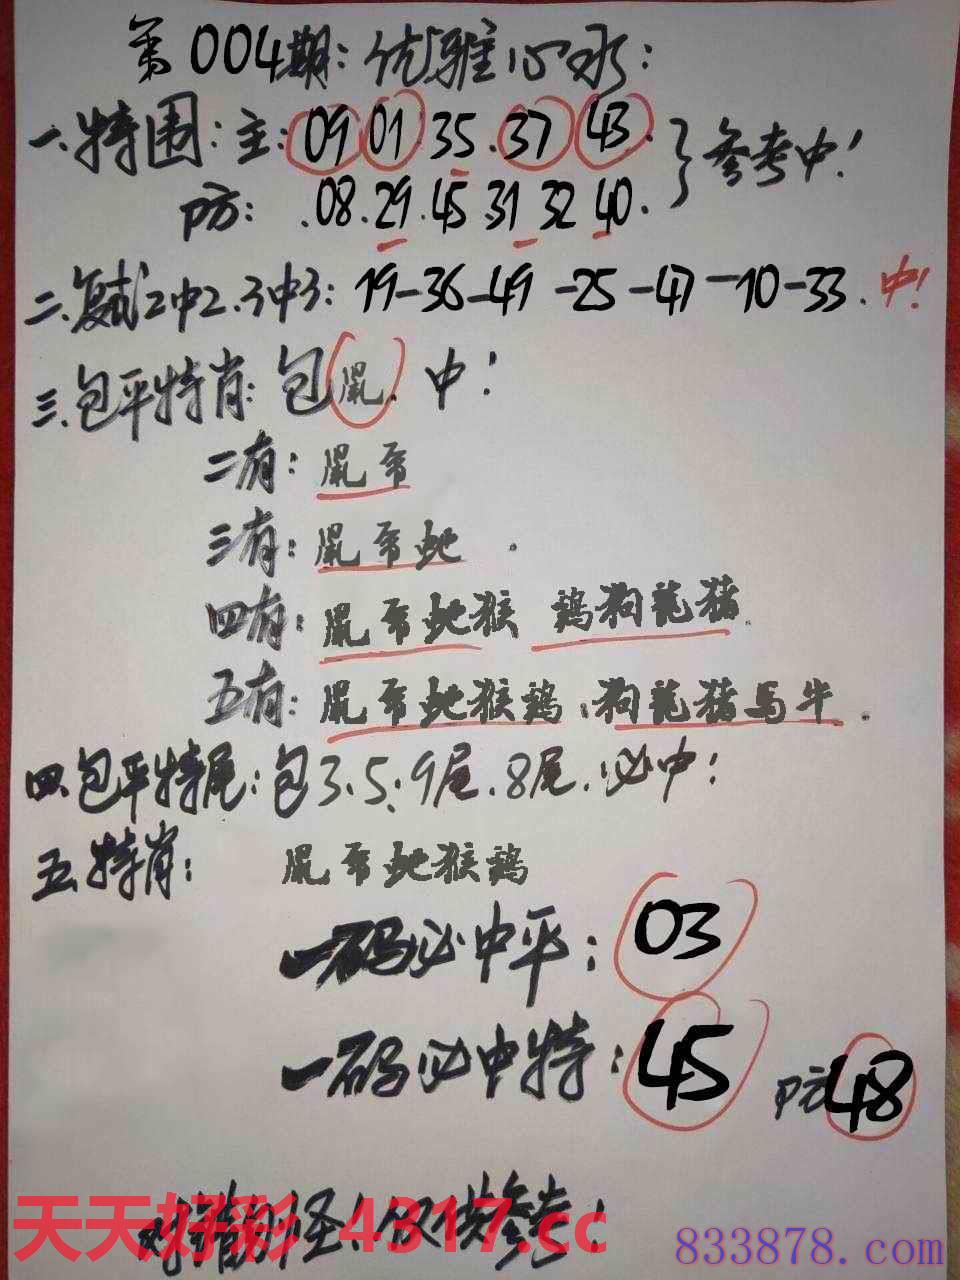 第004期：优雅心水：
一.特围：主：09 01 35.37 43.
防：.08.29.45.31 32 40.
}参考中！
二.复式2中2.3中3：19-36-49-25-47-10-33.中！
三.包平特肖：包鼠.中！
二有：鼠
三有：鼠 蛇.
四有：鼠 蛇猴 鸡狗龙猪.
五有：鼠 蛇猴鸡.狗龙猪马牛.
四.包平特尾：包3.5.9尾.8尾.必中！
五.特肖：鼠 蛇猴鸡
一码必中平：03
一码必中特：45 防48
天天好彩 4317.cc
仅供参考！
833878.com